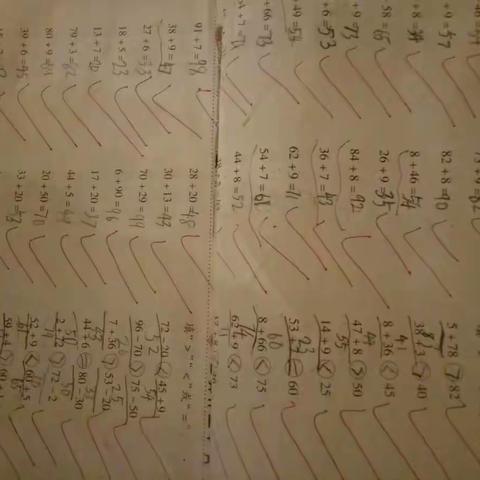 82+8=90 5+78>82
8+46=54 38+3>40
26+9=35 8+36<45
84+8=92 47+8>50
+6=53 36+7=43 14+9<25
62+9=71 53+7=60
54+7=61 8+66<75
44+8=52 62+9<73
91+7=98 28+20=48 填">""<"或"="
38+9=47 30+13=43 72-20<45+9
27+6=33 70+29=99 96-70>75-50
18+5=23 6+90=96 7+36>53-20
13+7=20 17+20=37 44+6=80-30
79+3=82 44+5=49 2+72>72-2
80+9=89 20+50=70 52+9<60+5
39+6=45 33+20=53